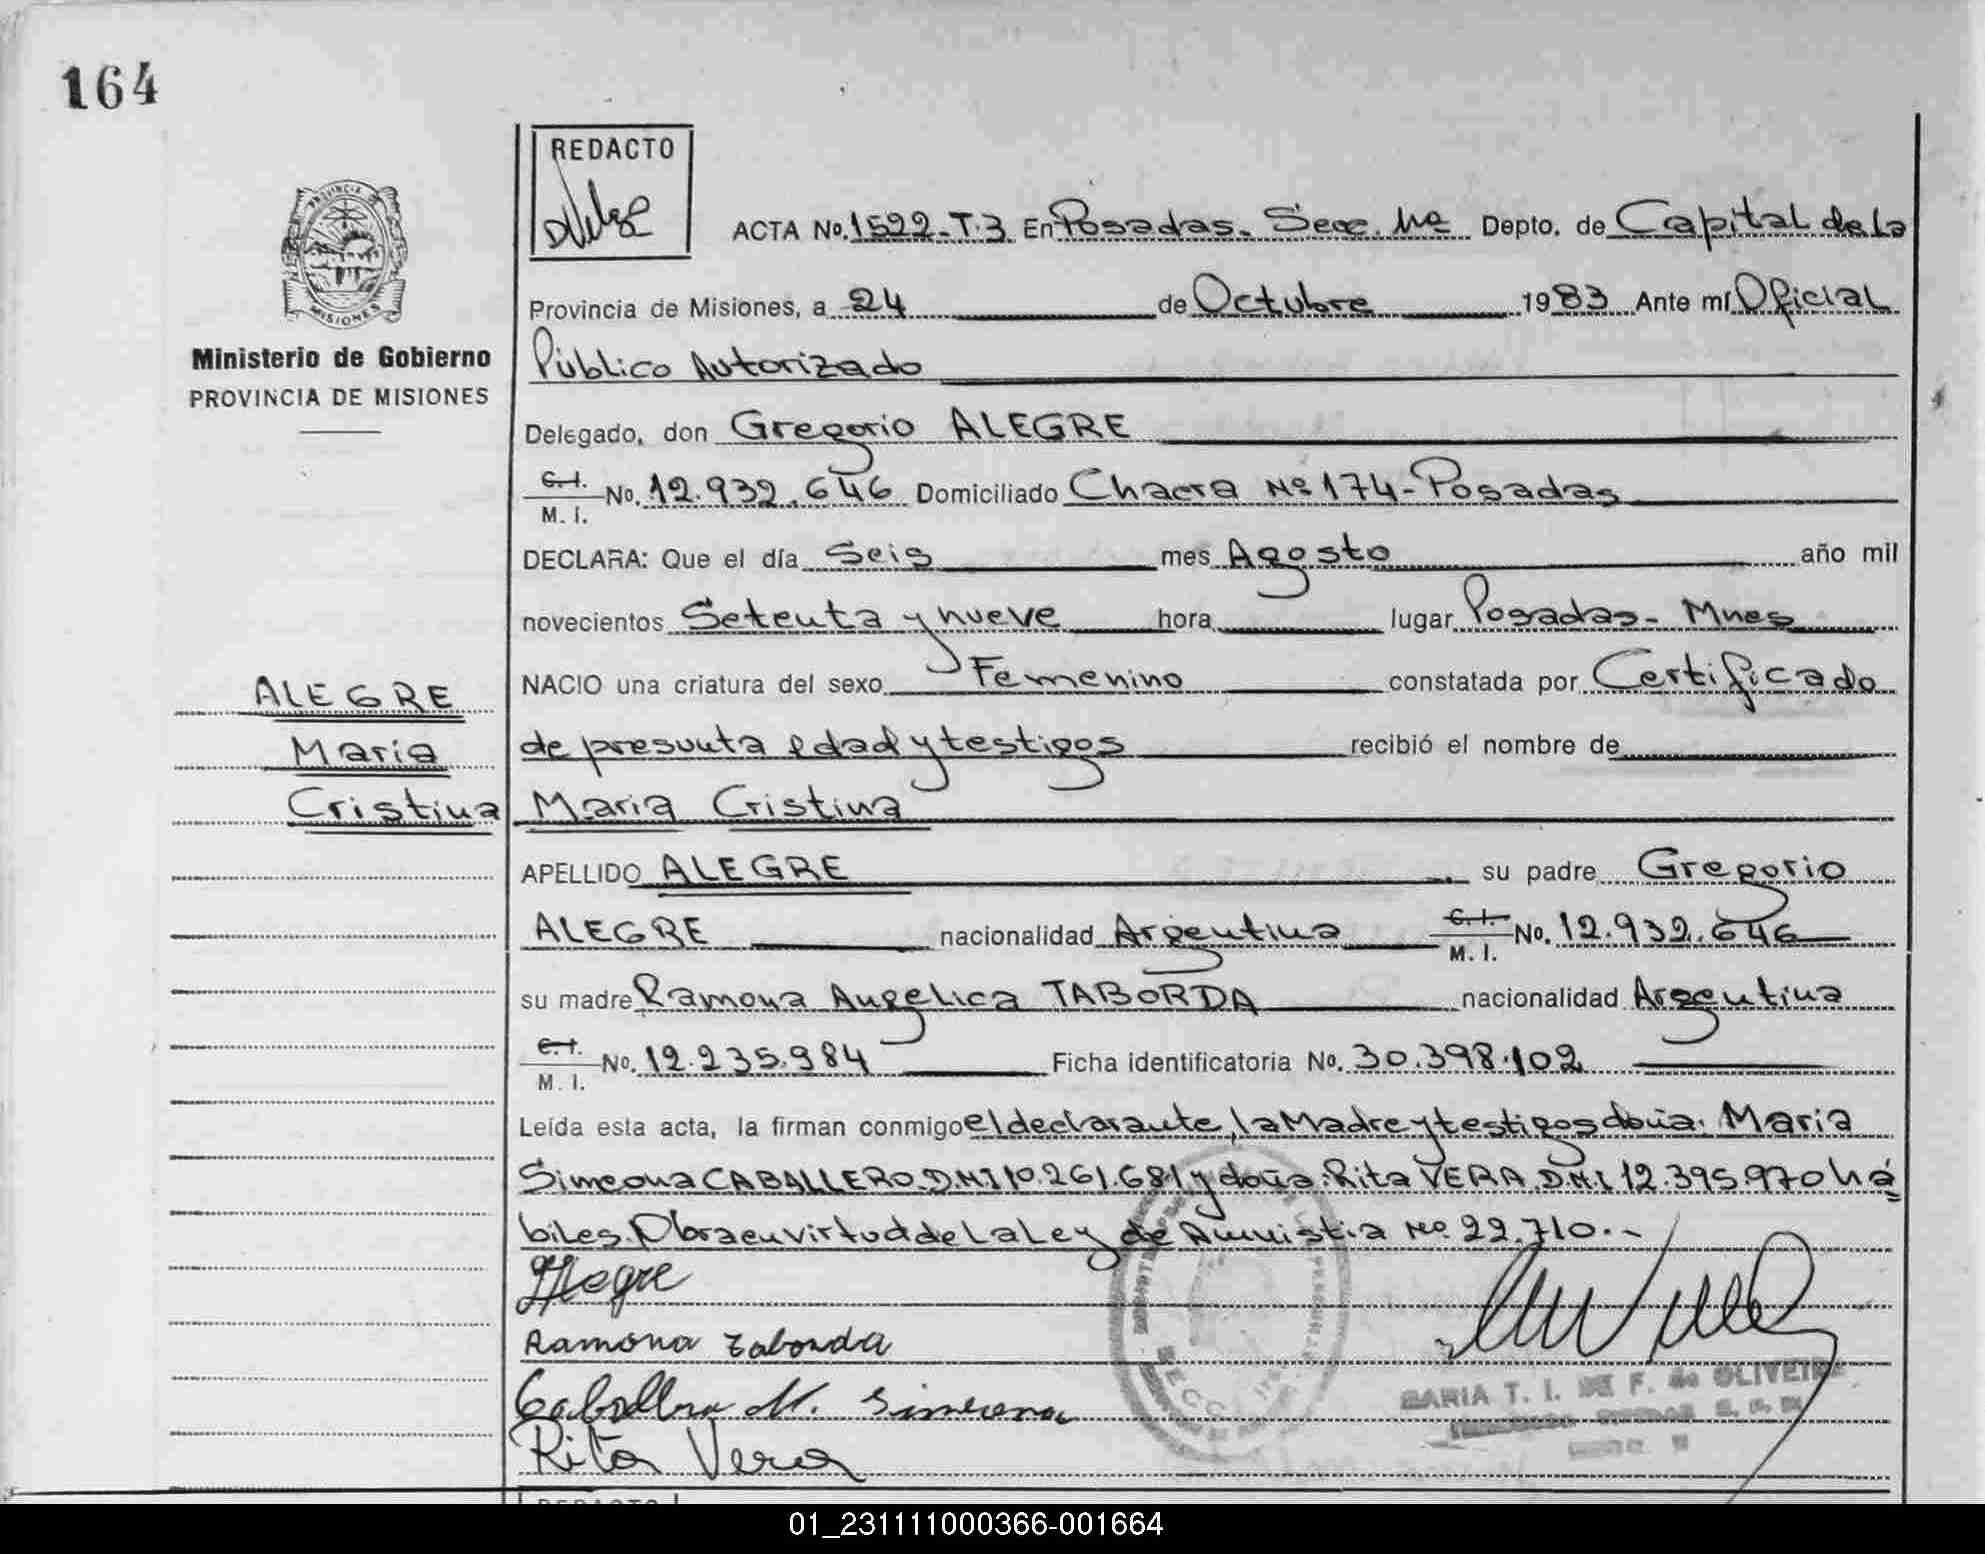 164
REDACTO
PROVINCIA
MISIONES
Ministerio de Gobierno
PROVINCIA DE MISIONES
ACTA No. 1522-T.3 En Posadas. Secc. Depto. de Capital de la
Provincia de Misiones, a 24 de Octubre 1983 Ante mí Oficial
Público Autorizado
Delegado, don Gregorio ALEGRE
C.I. M. I. No. 12.932.646 Domiciliado Chacra Nº 174-Posadas
DECLARA: Que el día Seis mes Agosto año mil
novecientos Setenta y nueve hora lugar Posadas-Mnes
NACIO una criatura del sexo Femenino constatada por Certificado
de presunta edad y testigos recibió el nombre de
Maria Cristina
APELLIDO ALEGRE su padre Gregorio
ALEGRE nacionalidad Argentina C.I. M. I. No. 12.932.646
su madre Ramona Angelica TABORDA nacionalidad Argentina
C.I. M. I. No. 12.235.984 Ficha identificatoria No. 30.398.102
Leída esta acta, la firman conmigo el declarante, la Madre y testigos doña: Maria
Simeona CABALLERO.D.N.I 10.261.681 y doña: Rita VERA.D.N.I 12.395.970 há
biles. Obra en virtud de la Ley de Amnistia Nº 22.710.-
ALEGRE
Maria
Cristina
Alegre
Ramona Taborda
Caballero M. Simeona
Rita Vera
MARIA T. I. DE F. de OLIVEIRA
REDACTO
01_231111000366-001664